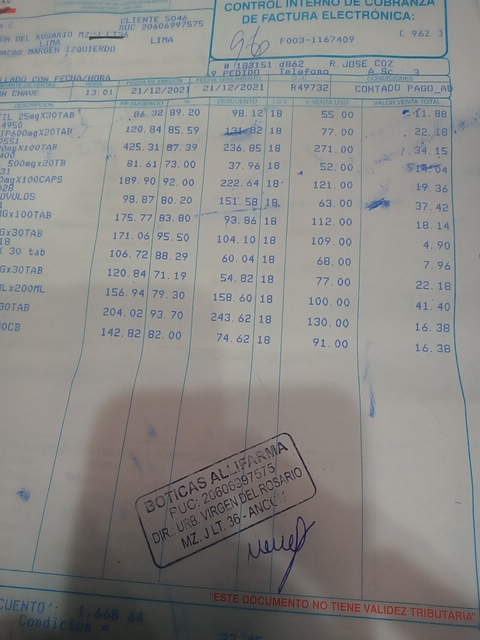 CONTROL INTERNO DE COBRANZA
DE FACTURA ELECTRÓNICA:
F003-1167409 ( 962 )
CLIENTE 5046
RUC 20606997575
EN DEL ROSARIO MZ-
LIMA LIMA
MARGEN IZQUIERDO
# /183151 d862 R.JOSE COZ
º PEDIDO Telefono A.Sc 3
LLADO CON FECHA/HORA
EN CHAVE 13:01 21/12/2021 21/12/2021 R49732 CONTADO PAGO_AD
DESCRIPCION DESCUENTO VALOR VENTA TOTAL
25mgX30TAB 86.32 89.20 98.12 18 55.00 11.88
600mgX20TAB 120.84 85.59 131.82 18 77.00 22.18
mgX100TAB 425.31 87.39 236.85 18 271.00 34.15
500mgx20TB 81.61 73.00 37.96 18 52.00 14.04
mgX100CAPS 189.90 92.00 222.64 18 121.00 19.36
OVULOS 98.87 80.20 151.58 18 63.00 37.42
Gx100TAB 175.77 83.80 93.86 18 112.00 18.14
Gx30TAB 171.06 95.50 104.10 18 109.00 4.90
X 30 tab 106.72 88.29 60.04 18 68.00 7.96
Gx30TAB 120.84 71.19 54.82 18 77.00 22.18
Lx200ML 156.94 79.30 158.60 18 100.00 41.40
30TAB 204.02 93.70 243.62 18 130.00 16.38
0CB 142.82 82.00 74.62 18 91.00 16.38
BOTICAS ALLIFARMA
RUC: 20606997575
DIR.: URB. VIRGEN DEL ROSARIO
MZ. J LT. 36 - ANCON
"ESTE DOCUMENTO NO TIENE VALIDEZ TRIBUTARIA"
CUENTO: 1,668.64
Condicion =